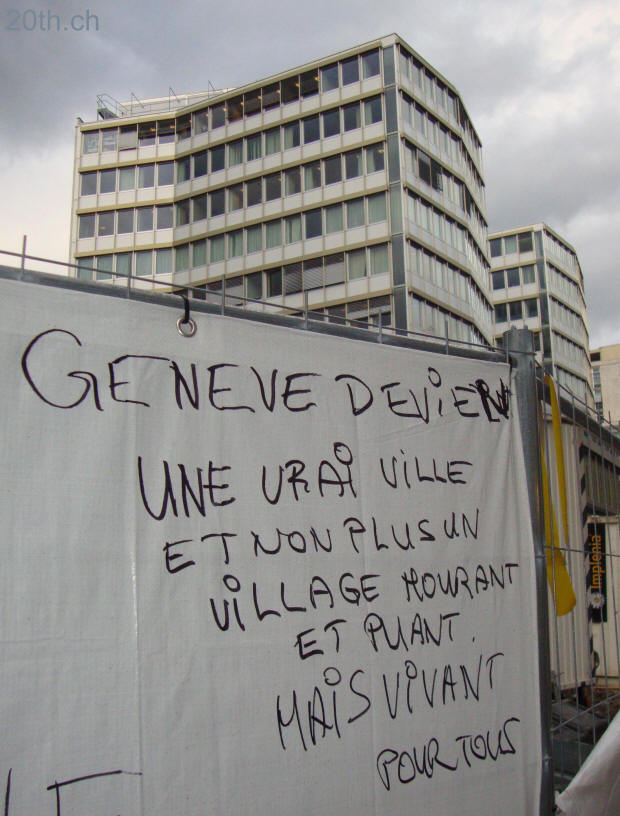 20th.ch
GENEVE DEVIENT
UNE VRAi ViLLE
ET NON PLUS UN
ViLLAGE MOURANT
ET PUANT.
MAiS ViVANT
POUR TOUS
Implenia